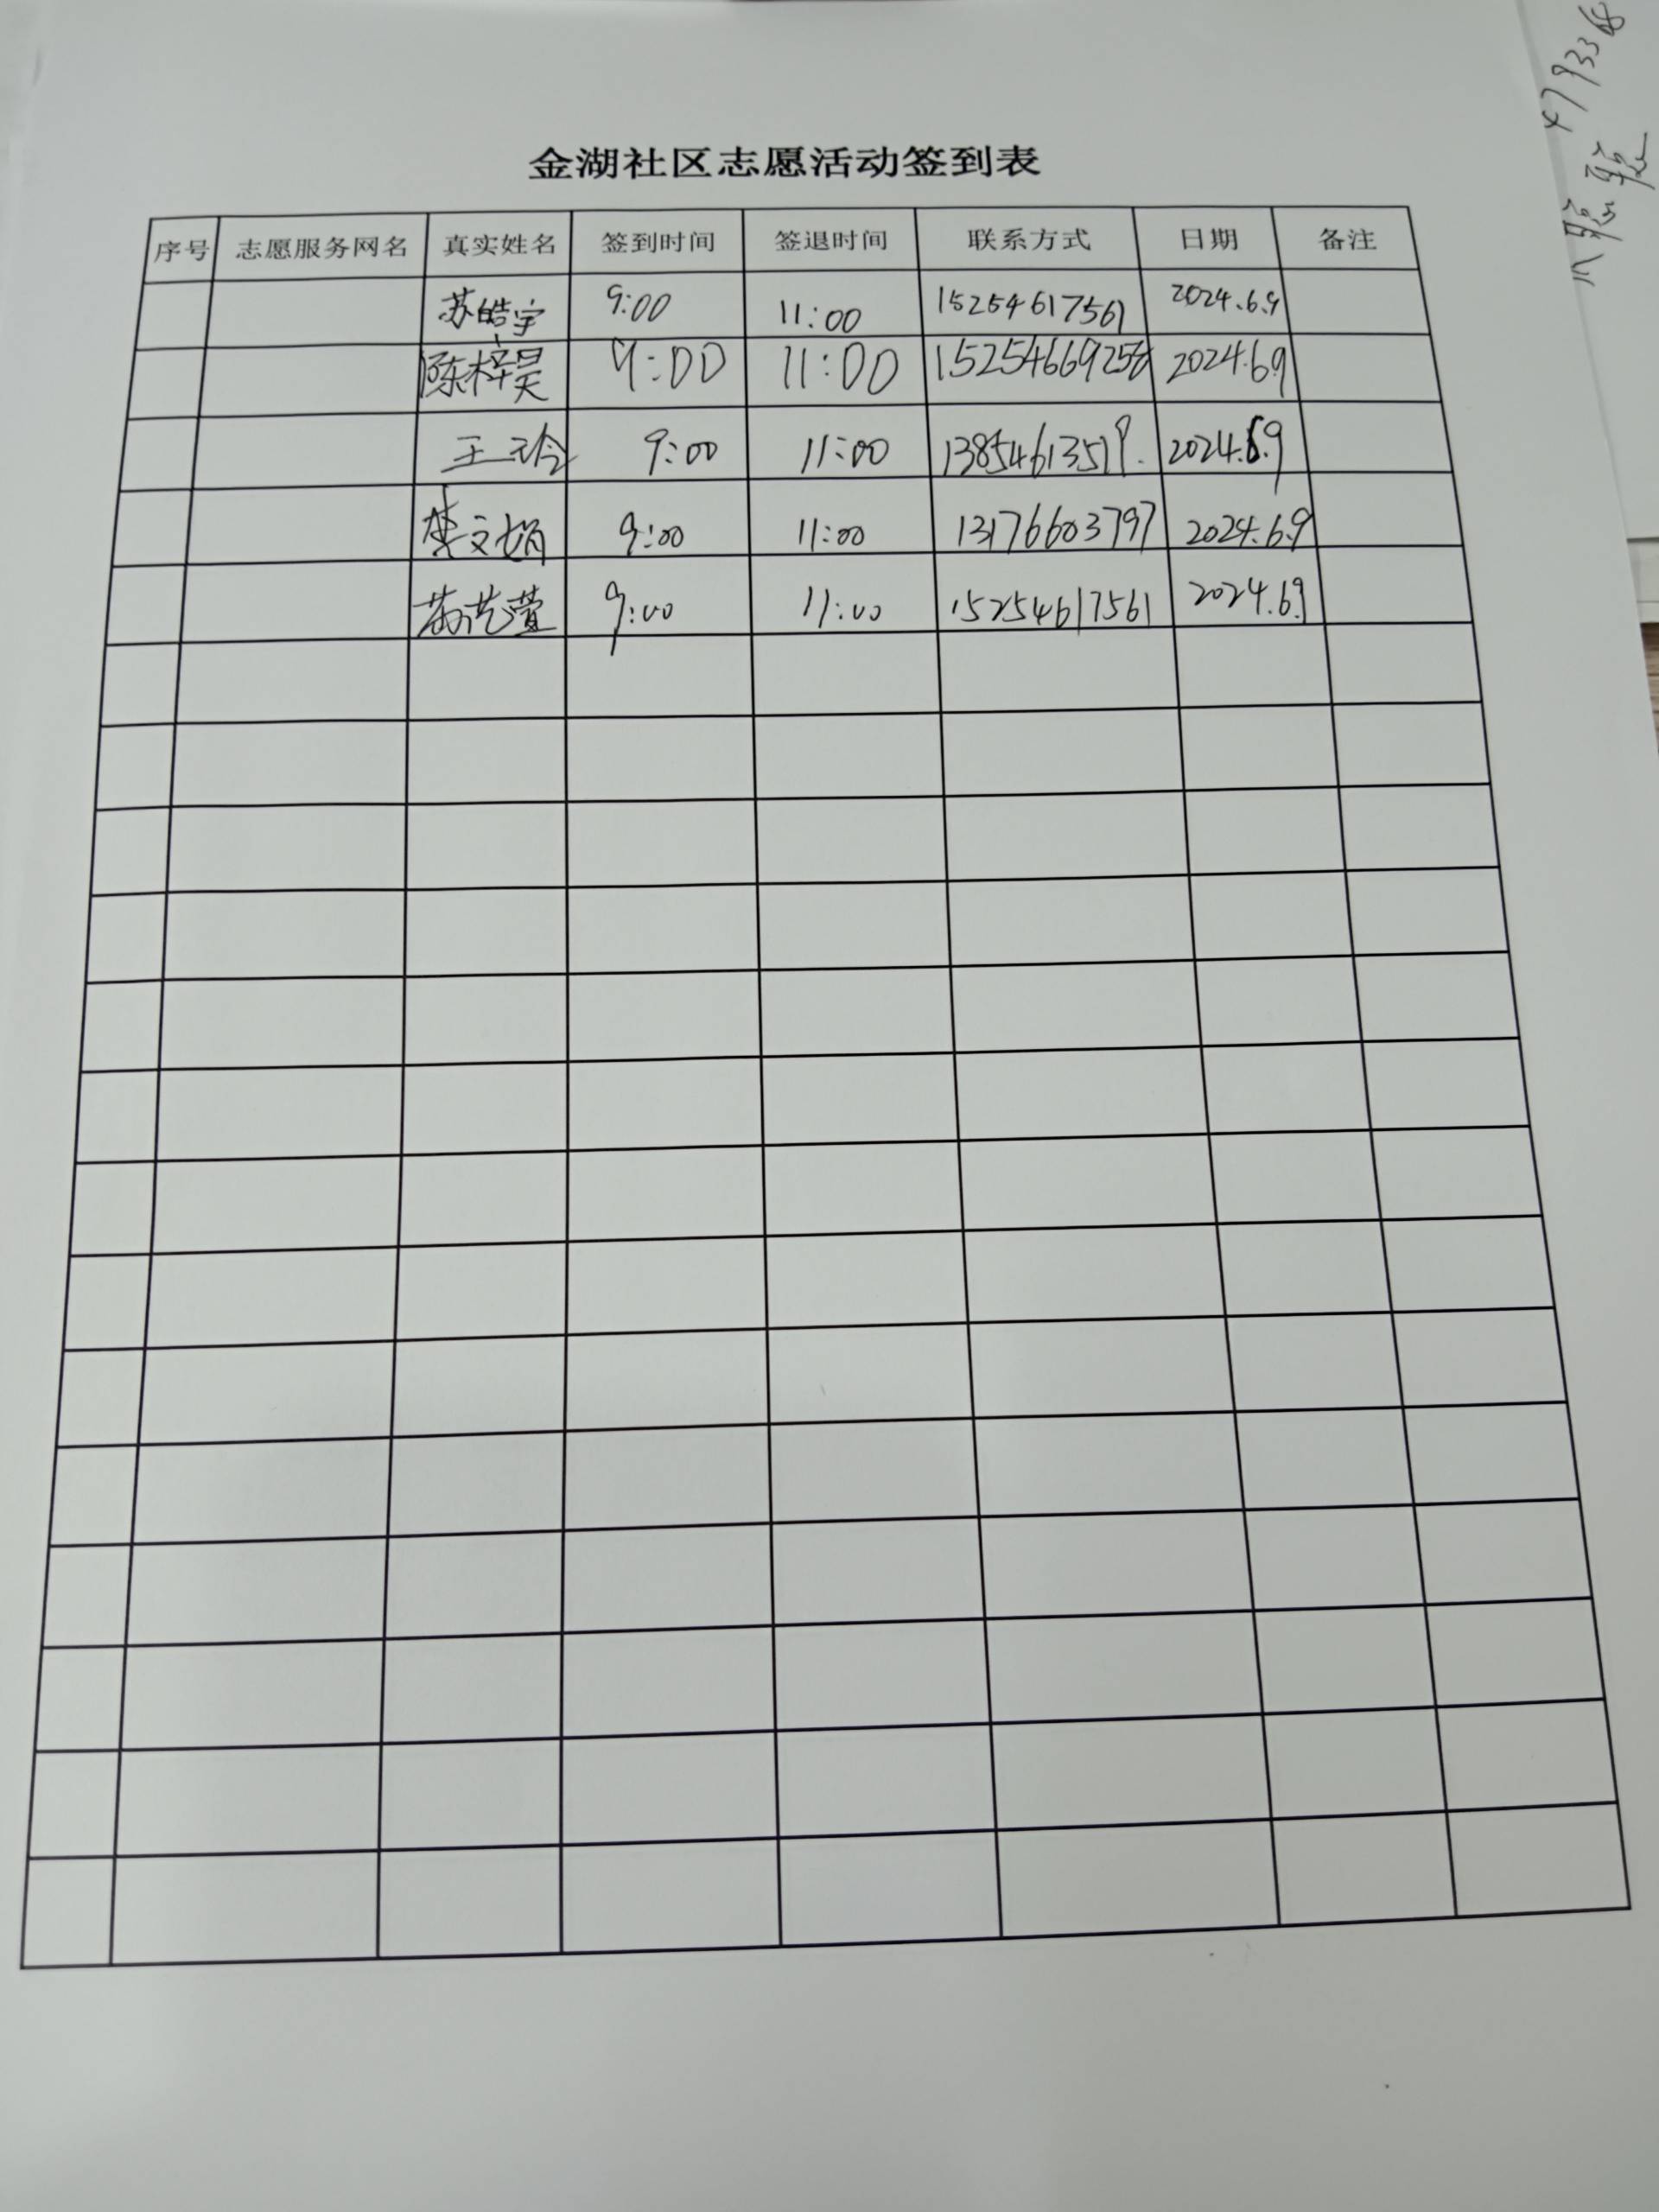 金湖社区志愿活动签到表
序号 志愿服务网名 真实姓名 签到时间 签退时间 联系方式 日期 备注
苏皓宇 9:00 11:00 15254617561 2024.6.9
陈梓昊 9:00 11:00 15254669258 2024.6.9
王玲 9:00 11:00 13854613519. 2024.6.9
李文娟 9:00 11:00 13176603797 2024.6.9
苏艺萱 9:00 11:00 15254617561 2024.6.9